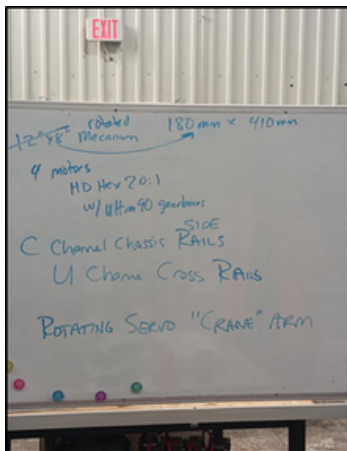 EXIT
rotated
12"x8" Mecanum 180mm x 410mm
4 motors
HD Hex 20:1
w/ Ultra 90 gearboxes
SIDE
C Channel Chassis RAILS
U Channe Cross RAILS
ROTATING SERVO "CRANE" ARM